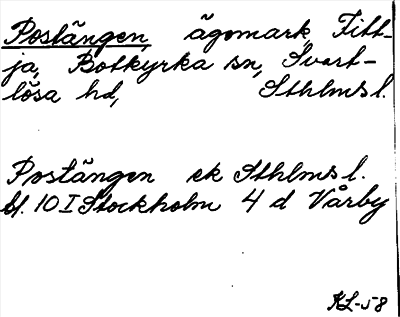 Postängen, ägomark, Fitt-
ja, Botkyrka sn, Svart-
lösa hd, Sthlms l.
Postängen ek Sthlms l.
bl. 10 I Stockholm 4 d Vårby
KL-58